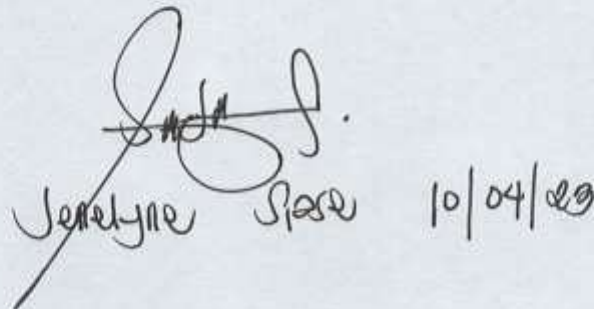 Jenelyne Siase 10/04/23